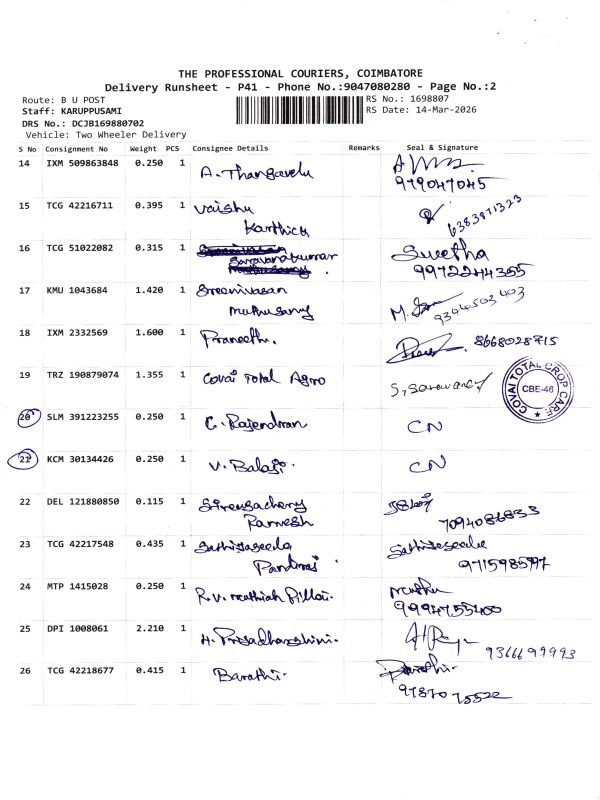 THE PROFESSIONAL COURIERS, COIMBATORE
Delivery Runsheet - P41 - Phone No.:9047080280 - Page No.:2
Route: B U POST
RS No.: 1698807
Staff: KARUPPUSAMI
RS Date: 14-Mar-2026
DRS No.: DCJB169880702
Vehicle: Two Wheeler Delivery
S No Consignment No Weight PCS Consignee Details Remarks Seal & Signature
14 IXM 509863848 0.250 1 A. Thangavelu
979047045
15 TCG 42216711 0.395 1 Vaishu
Karthick
6383971323
16 TCG 51022082 0.315 1 Saravanakumar Swetha
9972244355
17 KMU 1043684 1.420 1 Sreenivasan
Muthusamy
9344503403
18 IXM 2332569 1.600 1 Praneeth. 8668028715
19 TRZ 190879074 1.355 1 Covai Total Agro S, Saravanan
COVAI TOTAL CROP CARE
CBE-46
20 SLM 391223255 0.250 1 C. Rajendran CN
21 KCM 30134426 0.250 1 V. Balaji. CN
22 DEL 121880850 0.115 1
Ramesh
7094086833
23 TCG 42217548 0.435 1
24 MTP 1415028 0.250 1 R.V. Muthiah Pillai. Muthu
9994755400
25 DPI 1008061 2.210 1 H. Priyadharshini.
9366699993
26 TCG 42218677 0.415 1 Barathi. Barathi.
9787075522